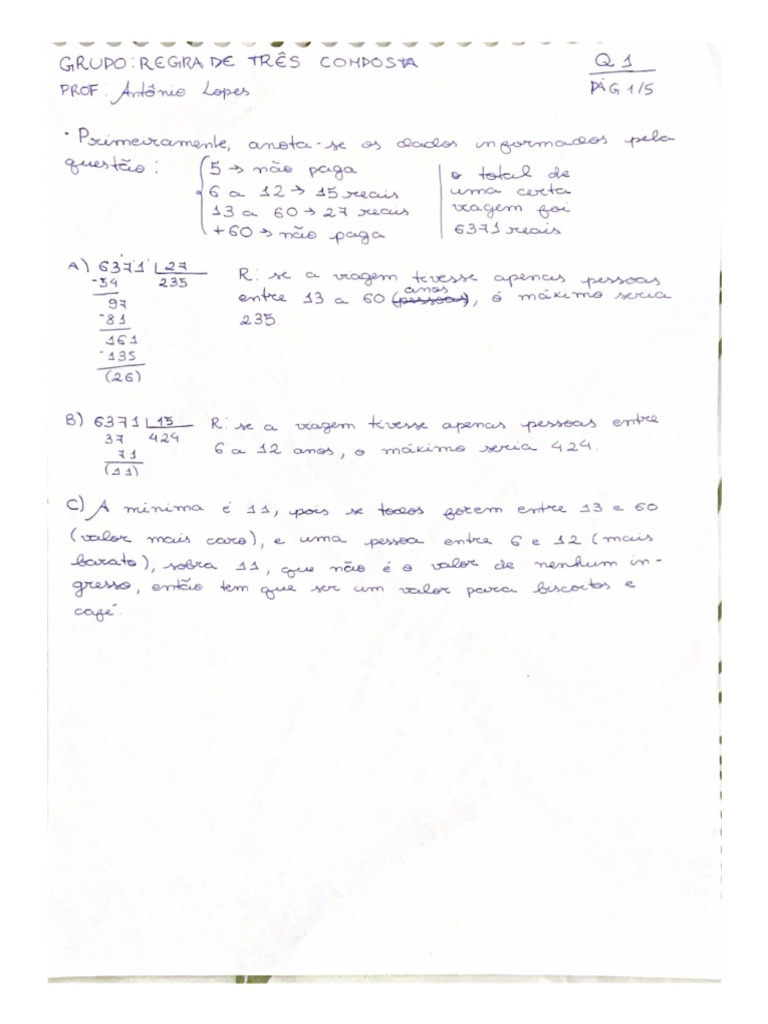 GRUPO: REGRA DE TRÊS COMPOSTA
Q 1
PROF: Antônio Lopes
PÁG 1/5
· Primeiramente, anota-se os dados informados pela
questão:
5 → não paga
6 a 12 → 15 reais
13 a 60 → 27 reais
+60 → não paga
o total de
uma certa
viagem foi
6371 reais
A) 6371 27
-54 235
97
-81
161
-135
(26)
R: se a viagem tivesse apenas pessoas
anos
entre 13 a 60 (pessoas), o máximo seria
235.
B) 6371 15
37 424
71
(11)
R: se a viagem tivesse apenas pessoas entre
6 a 12 anos, o máximo seria 424.
C) A mínima é 11, pois se todos forem entre 13 e 60
(valor mais caro), e uma pessoa entre 6 e 12 (mais
barato), sobra 11, que não é o valor de nenhum in-
gresso, então tem que ser um valor para biscoitos e
café.